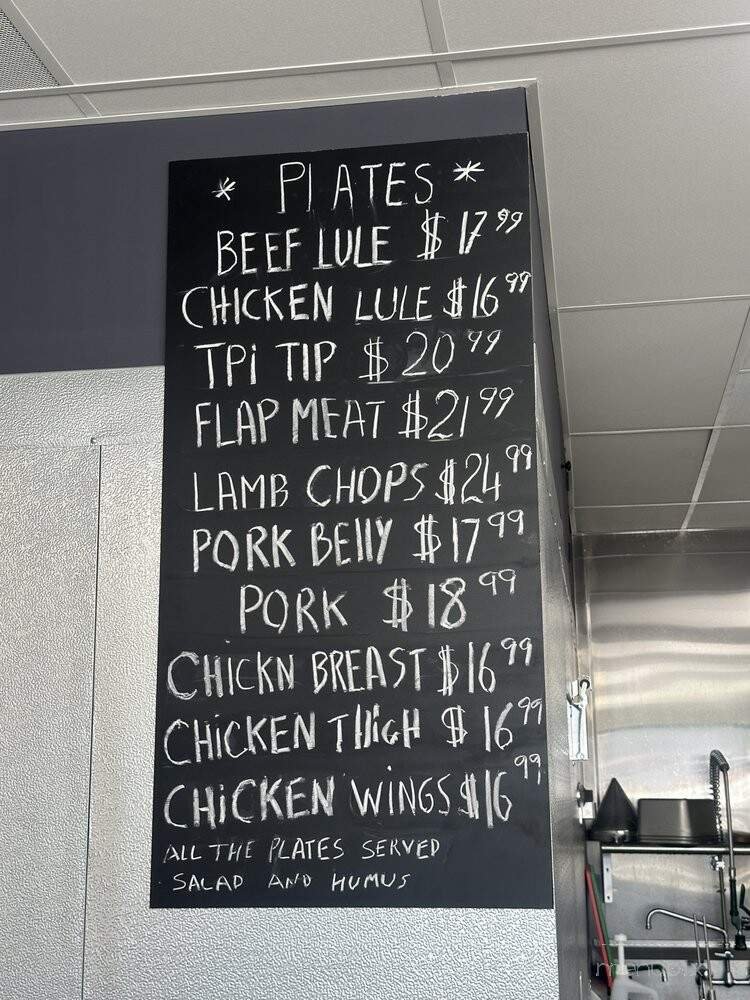 * PLATES *
BEEF LULE $17.99
CHICKEN LULE $16.99
TPi TIP $20.99
FLAP MEAT $21.99
LAMB CHOPS $24.99
PORK BEllY $17.99
PORK $18.99
CHiCKN BREAST $16.99
CHiCKEN THiGH $16.99
CHiCKEN WiNGS $16.99
ALL THE PLATES SERVED
SALAD AND HUMUS